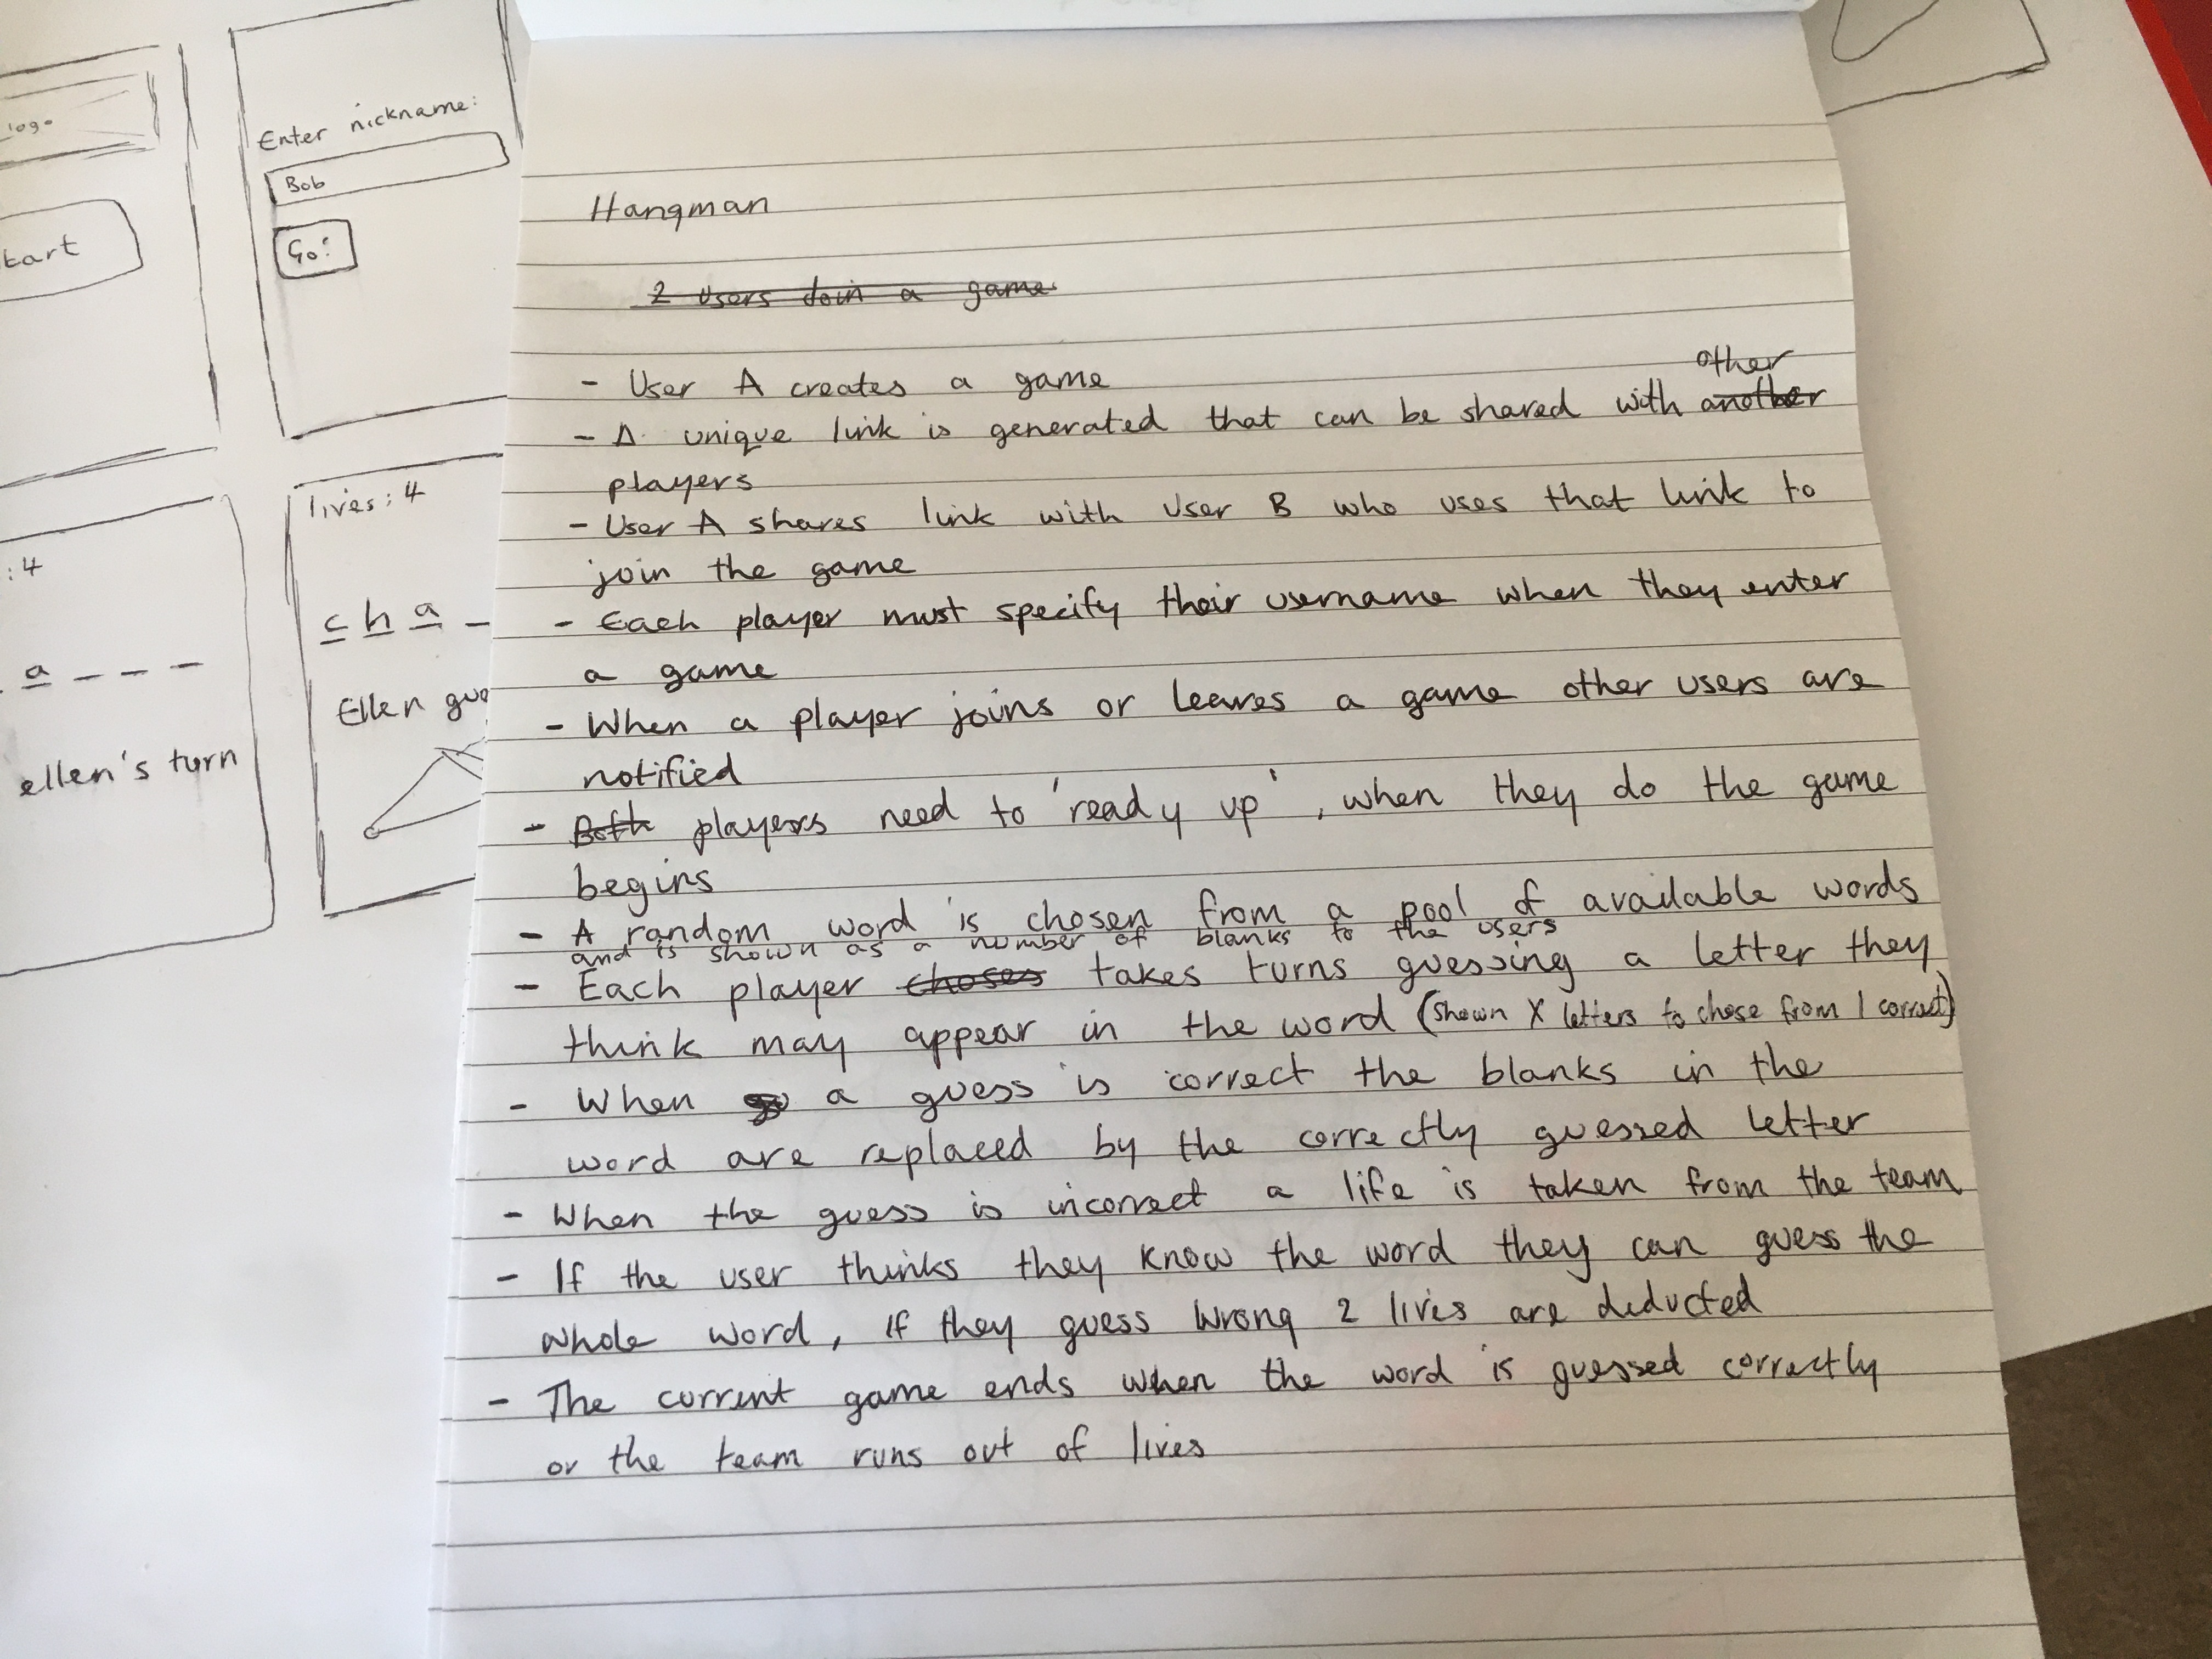 Hangman
2 users join a game
- User A creates a game
- A unique link is generated that can be shared with another other
players
- User A shares link with user B who uses that link to
join the game
- Each player must specify their username when they enter
a game
- When a player joins or leaves a game other users are
notified
- Both players need to 'ready up', when they do the game
begins
- A random word is chosen from a pool of available words
and is shown as a number of blanks to the users
- Each player choses takes turns guessing a letter they
think may appear in the word (shown X letters to chose from 1 correct)
- When a guess is correct the blanks in the
word are replaced by the correctly guessed letter
- When the guess is incorrect a life is taken from the team
- If the user thinks they know the word they can guess the
whole word, if they guess wrong 2 lives are deducted
- The current game ends when the word is guessed correctly
or the team runs out of lives
logo
Enter nickname:
Bob
Go!
: 4
a - - -
ellen's turn
lives: 4
c h a -
Ellen